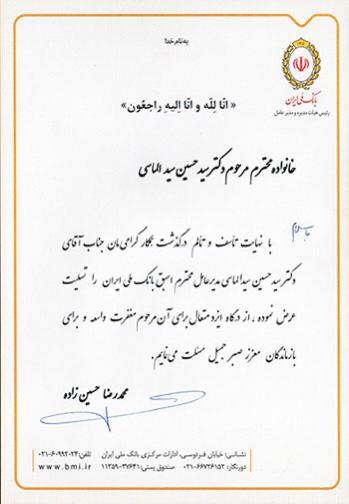 به نام خدا
بانک ملی ایران
رئیس هیأت مدیره و مدیر عامل
« انا لله و انا الیه راجعون »
خانواده محترم مرحوم دکتر سید حسین سید الماسی
با سلام
با نهایت تأسف و تألم درگذشت همکار گرامی‌مان جناب آقای
دکتر سید حسین سید الماسی مدیرعامل محترم اسبق بانک ملی ایران را تسلیت
عرض نموده ، از درگاه ایزد متعال برای آن مرحوم مغفرت واسعه و برای
بازماندگان معزز صبر جمیل مسئلت می‌نمایم.
محمدرضا حسین زاده
نشانی: خیابان فردوسی، ادارات مرکزی بانک ملی ایران تلفن: ۶۰۹۹۲۰۲۴-۰۲۱
دورنگار: ۶۶۷۲۶۱۵۲-۰۲۱ صندوق پستی: ۳۷۶۴۱-۱۱۳۵۹ www.bmi.ir